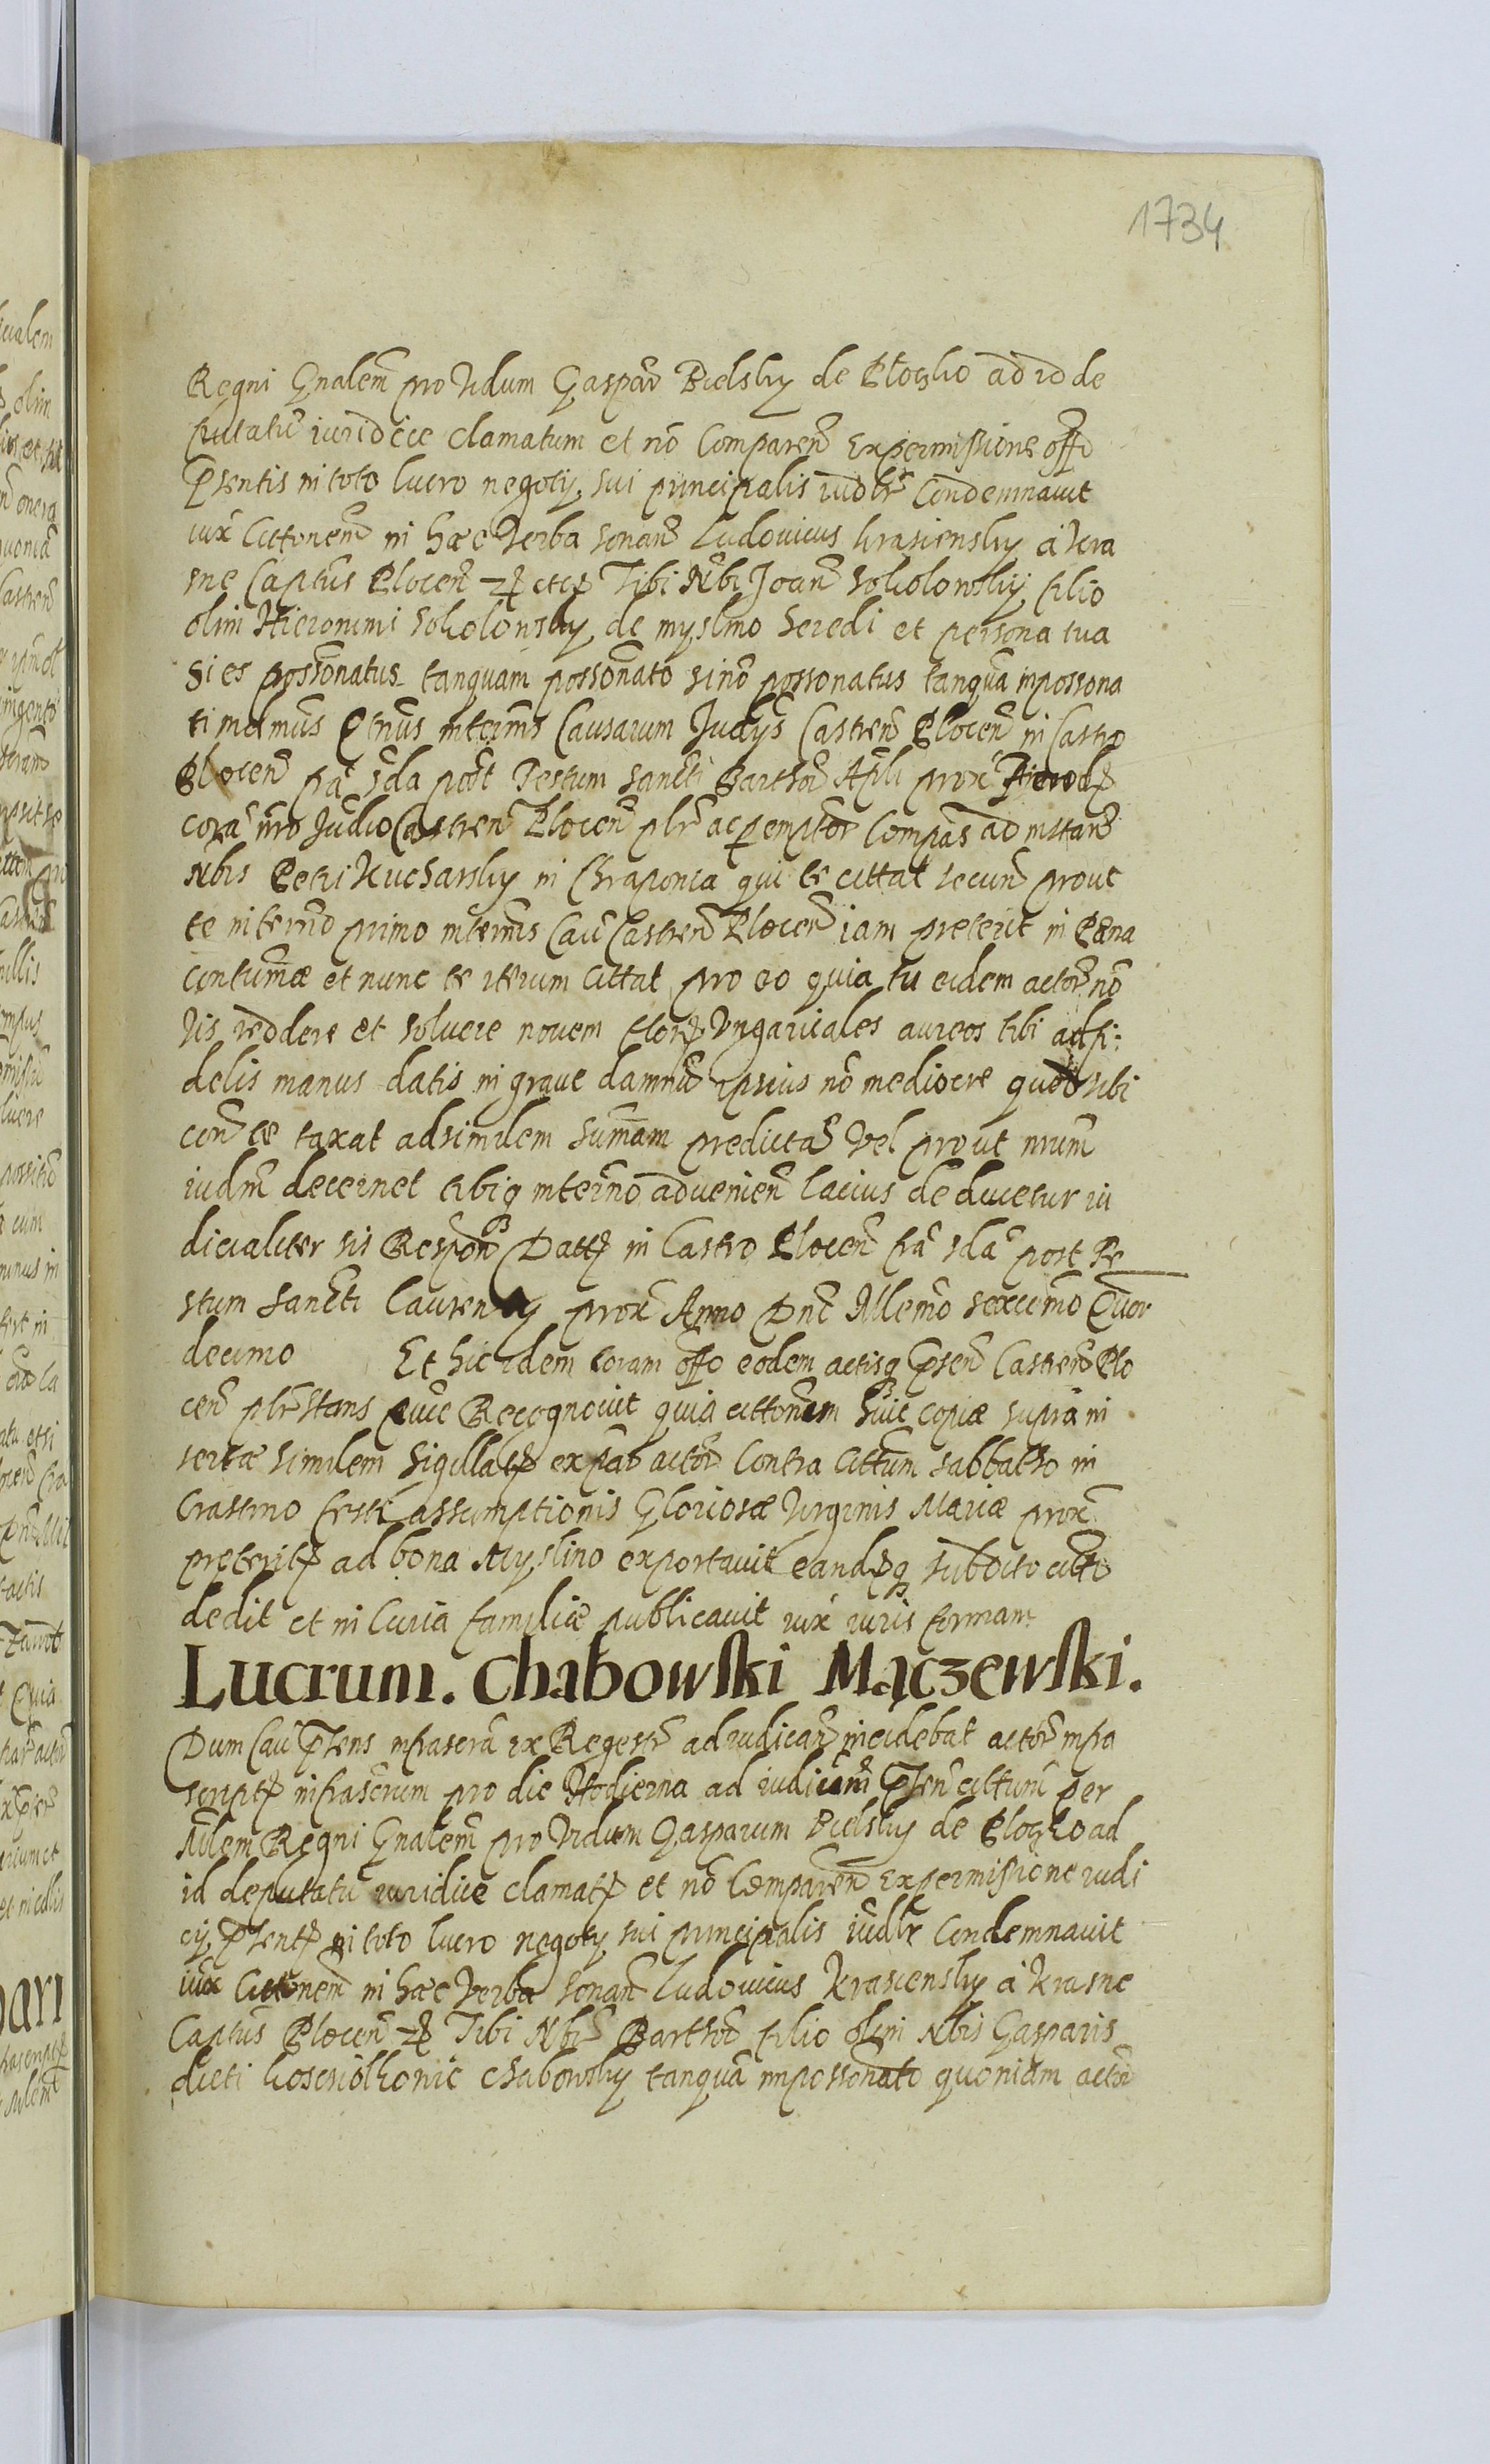 1734
Regni Gnalem pro vidum Gaspar Bielsky de Plocko ad id de
putatu iuridice clamatum et no Comparen Ex permissione offo
Psentis in toto lucro negoty sui principalis iudlr Condemnavit
iux Cittonem in haec Verba sonan Ludovicus Krasiensky a Kra
sne Captus Plocen etc Tibi Nbi Joan Sokolowsky filio
olim Hieronimi Sokolowsky de myslino heredi et persona tua
Si es possonatus tanquam possonato sino possonatus tanqua impossona
Plocen fra sda post Festum Sancti Barthol Apli prox
cora nro Judio Castren Plocen plr ac peremptor Compas ad instan
Nbis Petri Kucharsky in Chraponia qui te cittat secun prout
te in termo primo intermis Cau Castren Plocen iam preterit in Paena
contumae et nunc te iterum cittat pro eo quia tu eidem actor no
vis reddere et solvere novem flor Ungaricales aureos tibi ad fi:
delis manus datis in grave damnu ipsius no mediocre quod sibi
con te taxat ad similem sumam predicta vel prout nrum
iudm decernet tibiq in termo advenien lacius deducetur iu
dicialiter sis Respon Datt in Castro Plocen fra sda post Fe
stum Sancti Laurenty prox Anno Dni Millemo sexcemo Quar
decimo Et hic idem coram offo eodem actisq Psen Castren Plo
cen plr stans Recognovit quia cittonem huic copiae supra in
sertae similem Sigillat ex pat actor Contra Cittum sabbatho in
Crastino festi assumptionis Gloriosae Virginis Mariae prox
preterit ad bona Myslino exportavit eandq subocto citto
dedit et in Curia familiae publicavit iux iuris formam
Lucrum. Chabowski Mączewski.
Dum Cau Psens infrascra ex Regestr ad iudican incidebat actor infra
script infrascrum pro die Hodierna ad iudicium Psen cittum per
Milem Regni Gnalem pro vidum Gasparum Bielsky de Plocko ad
id deputatu iuridice clamat et no Comparen Ex permissione iudi
cy Psent in toto lucro negoty sui principalis iudlr Condemnavit
iux Cittonem in haec Verba sonan Ludovicus Krasiensky a Krasne
Captus Plocen Tibi Nbi Barthol filio olim Nbis Gasparis
dicti Chabowsky tanqua impossonato quoniam actor